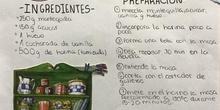 -INGREDIENTES-
• 250g mantequilla
• 150g azúcar
• 1 huevo
• 1 cucharada de vainilla
• 500g de harina (tamizada)
PREPARACIÓN
① mezclar mantequilla, azúcar,
vainilla y huevo
② incorporar la harina poco a
poco
③ formar una bola con la masa
④ dejar reposar 30 min en la
nevera
⑤ extiende la masa
⑥ cortar con el cortador de
galletas